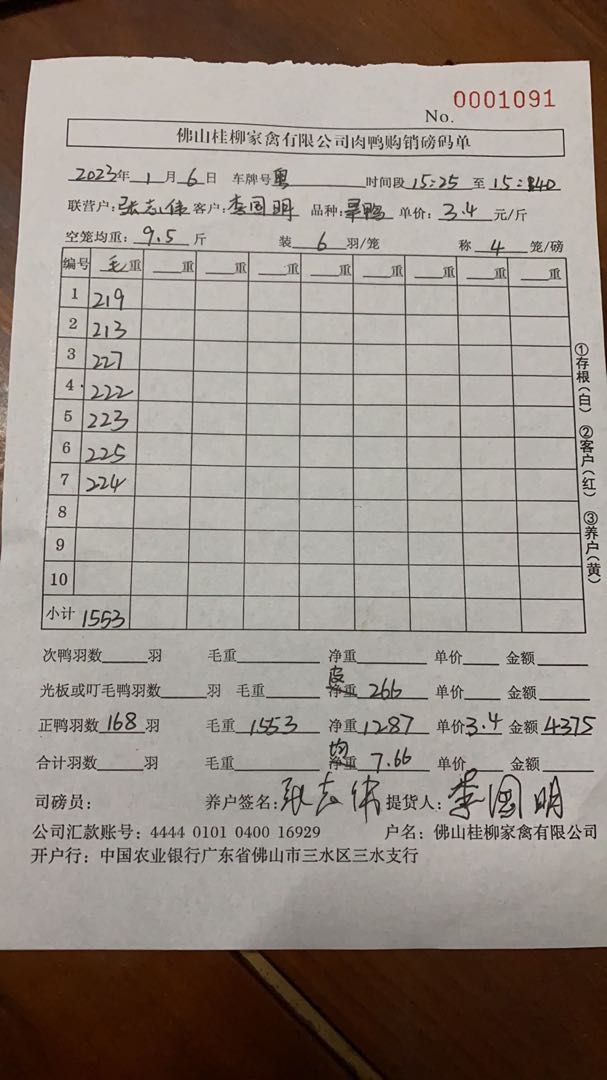 No. 0001091
佛山桂柳家禽有限公司肉鸭购销磅码单
2023年 1 月 6 日 车牌号 粤 时间段 15:25 至 15:40
联营户: 张志伟 客户: 李国明 品种: 单价: 3.4 元/斤
空笼均重: 9.5 斤 装 6 羽/笼 称 4 笼/磅
编号 毛重 重 重 重 重 重 重 重 重
1 219
2 213
3 227
4 222
5 223
6 225
7 224
8
9
10
小计 1553
①存根(白) ②客户(红) ③养户(黄)
次鸭羽数 羽 毛重 净重 单价 金额
光板或叮毛鸭羽数 羽 毛重 皮重 266 单价 金额
正鸭羽数 168 羽 毛重 1553 净重 1287 单价 3.4 金额 4375
合计羽数 羽 毛重 均重 7.66 单价 金额
司磅员: 养户签名: 张志伟 提货人: 李国明
公司汇款账号: 4444 0101 0400 16929 户名: 佛山桂柳家禽有限公司
开户行: 中国农业银行广东省佛山市三水区三水支行